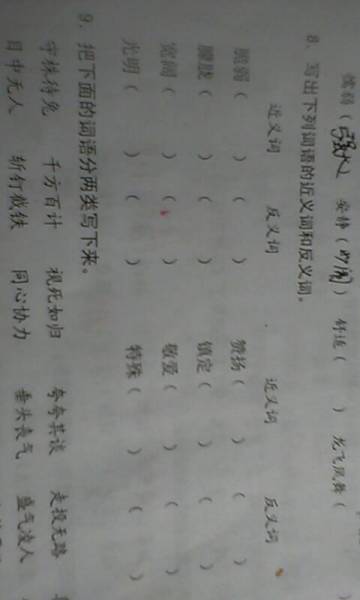 懦弱（强大） 安静（吵闹） 舒适（ ） 龙飞凤舞（ ）
8. 写出下列词语的近义词和反义词。
近义词 反义词 近义词 反义词
脆弱（ ）（ ） 赞扬（ ）（ ）
朦胧（ ）（ ） 镇定（ ）（ ）
宽阔（ ）（ ） 敬爱（ ）（ ）
光明（ ）（ ） 特殊（ ）（ ）
9. 把下面的词语分两类写下来。
守株待兔 千方百计 视死如归 夸夸其谈 走投无路
目中无人 斩钉截铁 同心协力 垂头丧气 盛气凌人